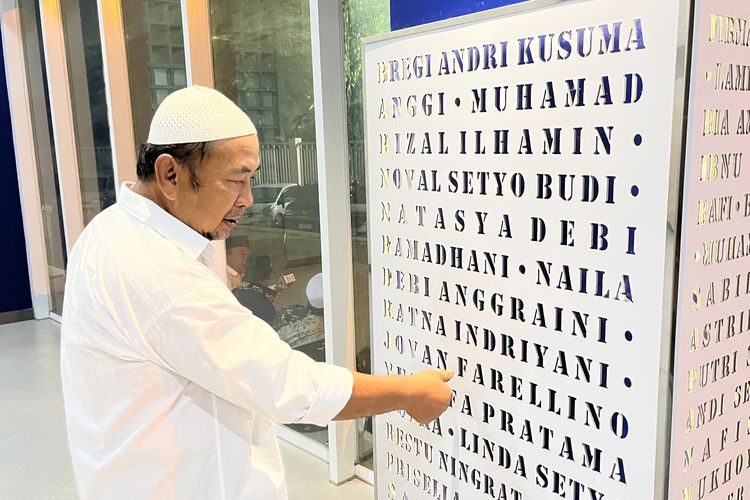 BREGI ANDRI KUSUMA
ANGGI • MUHAMAD
RIZAL ILHAMIN •
NOVAL SETYO BUDI •
NATASYA DEBI
RAMADHANI • NAILA
DEBI ANGGRAINI •
RATNA INDRIYANI •
JOVAN FARELLINO
PRATAMA
• LINDA SETY
RESTU NINGRAT
PRISELIA
FIRMA
• LAM
RIA AN
IBNU
RAFI •
• MUHAM
SABIL
ASTRI
PUTRI S
ANDI SE
NAFIS
MUKHO